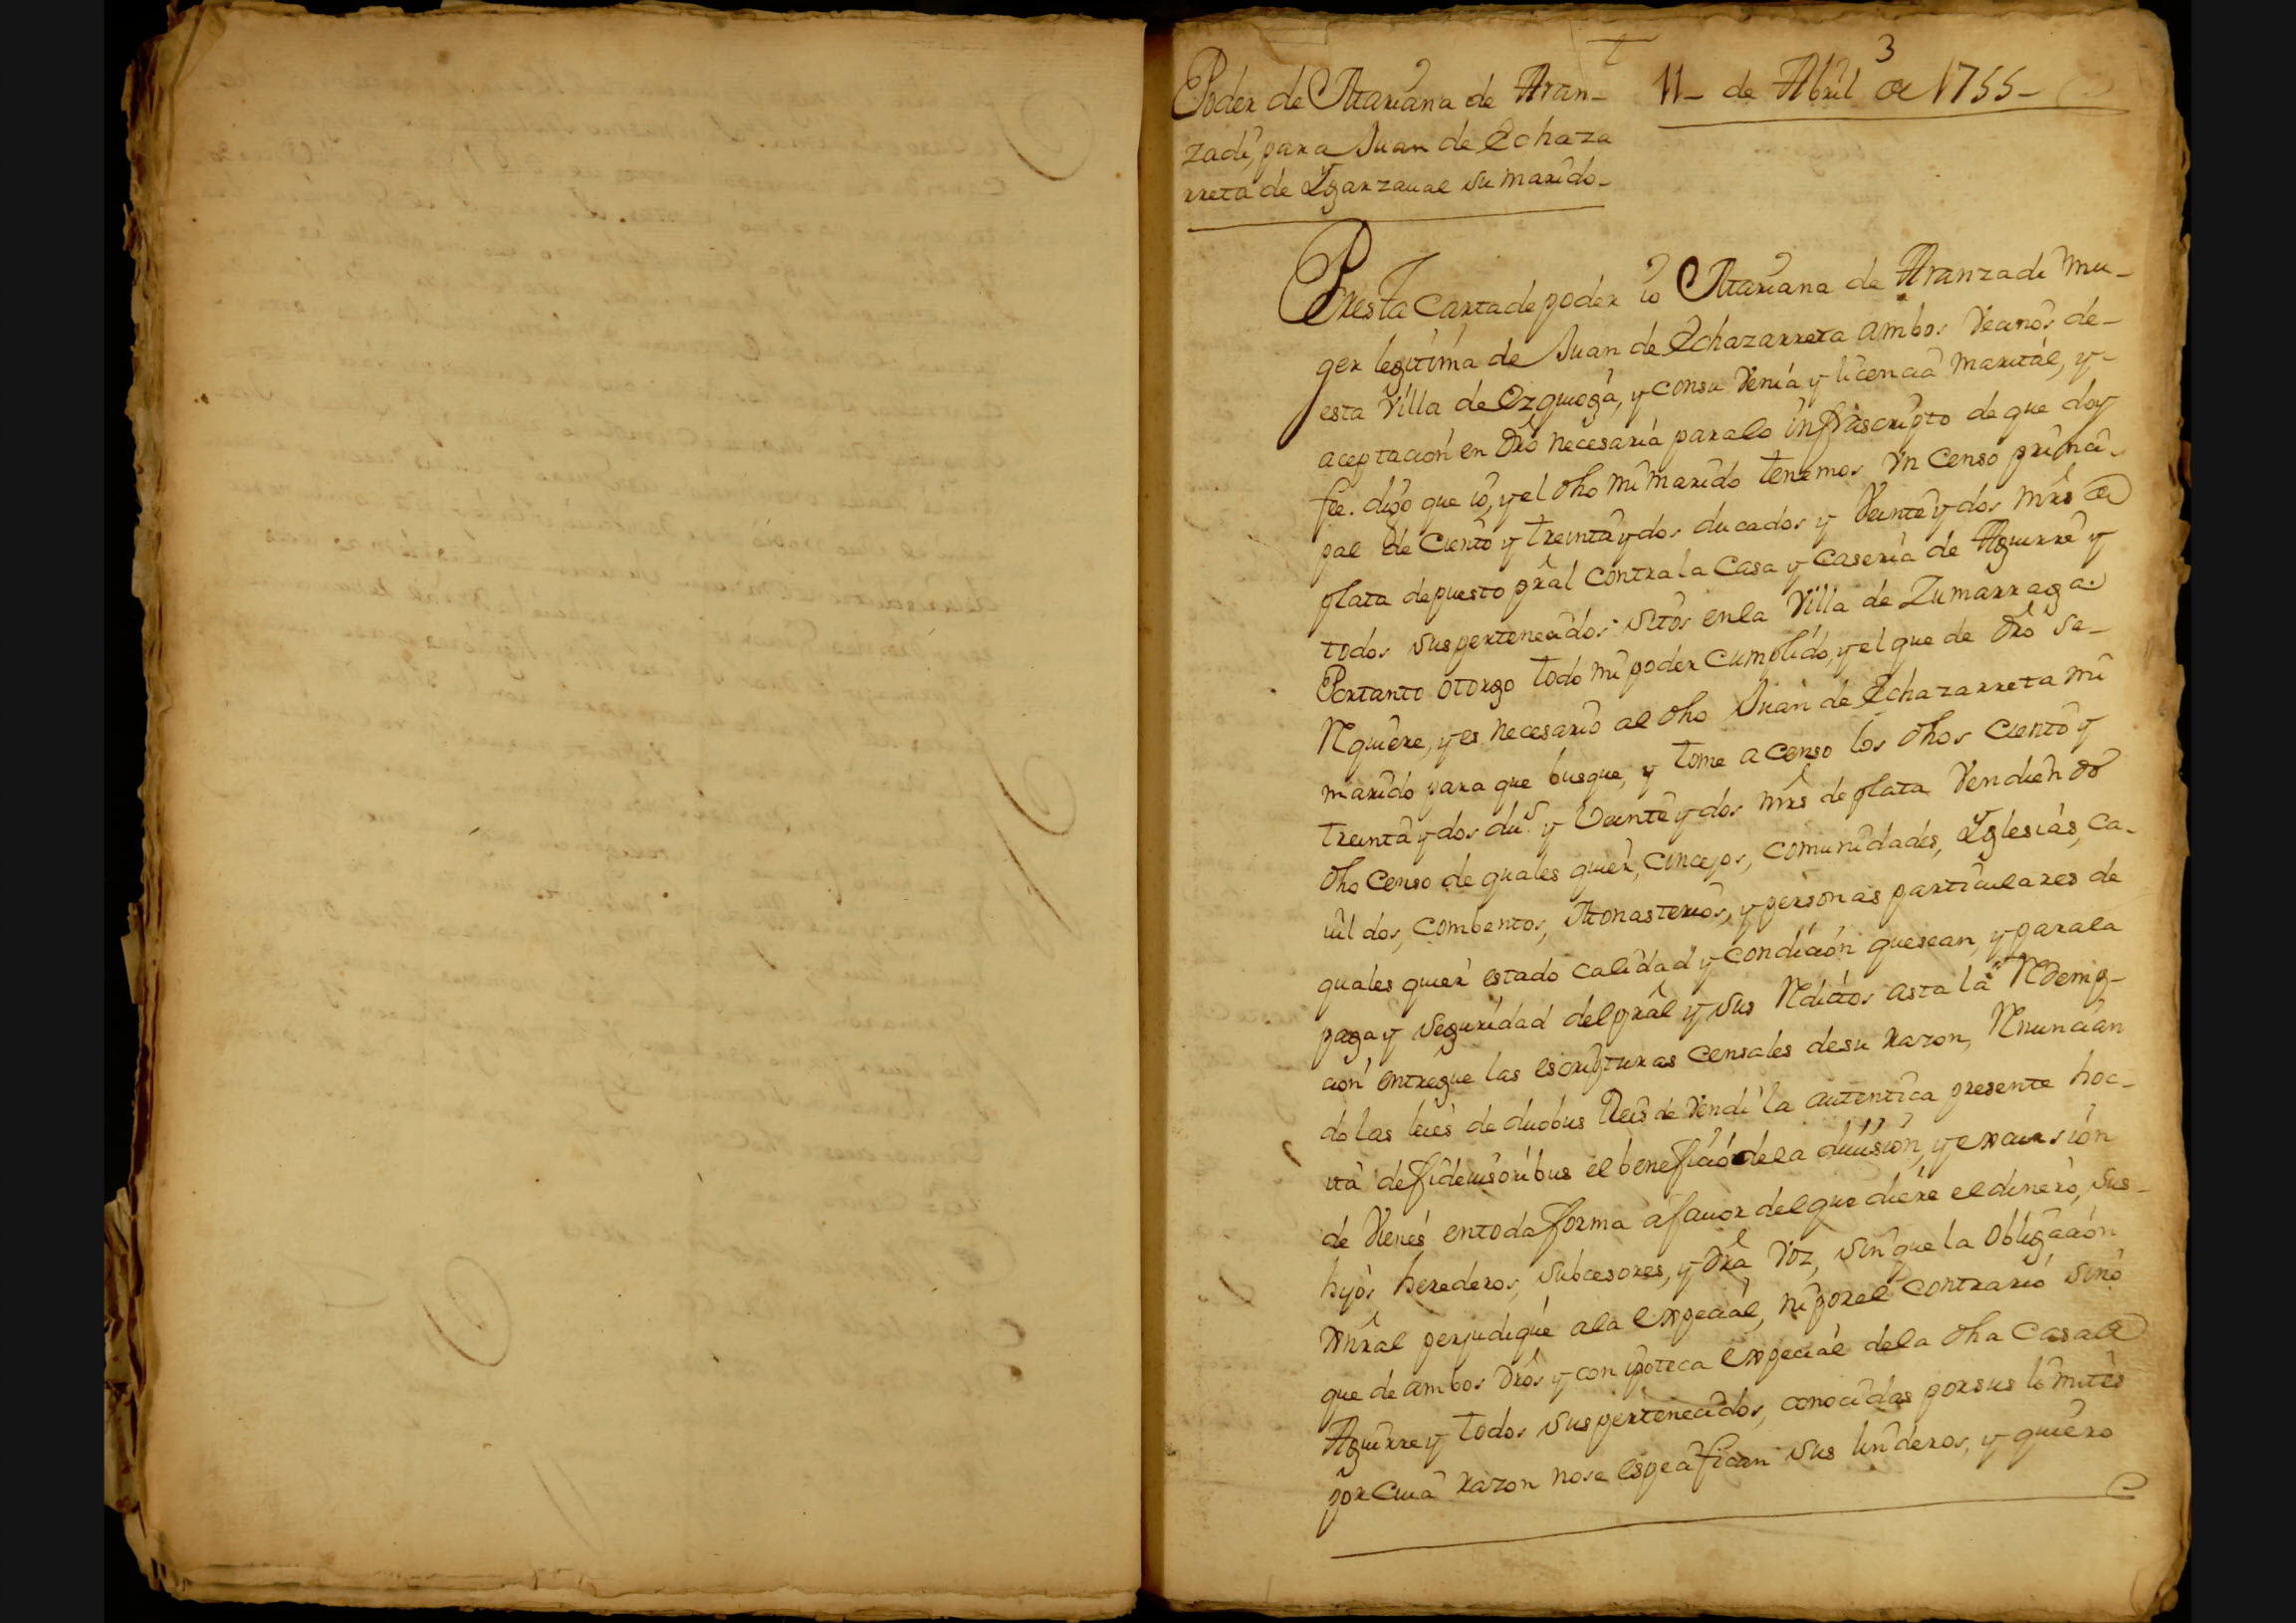 3
Poder de Mariana de Aran-
zadi, para Juan de Echaza
rreta de Ygarzaual su marido-
11- de Abril de 1755-
Por esta Carta de poder io Mariana de Aranzadi Mu-
ger legitima de Juan de Echazarreta ambos Vecinos de-
esta Villa de Ezquioga, y con su Venia y licencia marital, y-
aceptacion en Dro necesaria para lo infrascripto de que doy
fee. digo que io, y el dho mi marido tenemos Vn Censo princi-
pal de Ciento y treinta y dos ducados y Veinte y dos mrs de
plata de puesto pral contra la Casa y Caseria de Aguirre y
todos sus pertenecidos sitos en la Villa de Zumarraga.
Portanto otorgo todo mi poder cumplido, y el que de Dro se-
Requiere, y es necesario al dho Juan de Echazarreta mi
marido para que busque, y tome a censo los dhos Ciento y
treinta y dos dus. y Veinte y dos mrs de plata Vendiendo
dho Censo de quales quier, concejos, comunidades, Yglesias, ca-
uildos, combentos, Monasterios, y personas particulares de
quales quier estado calidad y condicion que sean, y para la
paga y seguridad del pral y sus Reditos asta la Redemp-
cion entregue las escripturas censales de su razon, Renuncian
do las leies de duobus Reis de Vendi la autentica presente hoc-
ita de fideiusoribus el beneficio de la diuision, y excursion
de Vienes en toda forma a fauor del que diere el dinero, sus-
hijos herederos, subcesores, y Dra Voz, sin que la Obligacion
xnral perjudique a la expecial, ni por el contrario sino
que de ambos Dros y con ipoteca expecial de la dha Casa de
Aguirre y todos sus pertenecidos, conocidas por sus limites
por cuia razon no se especifican sus linderos, y quiero